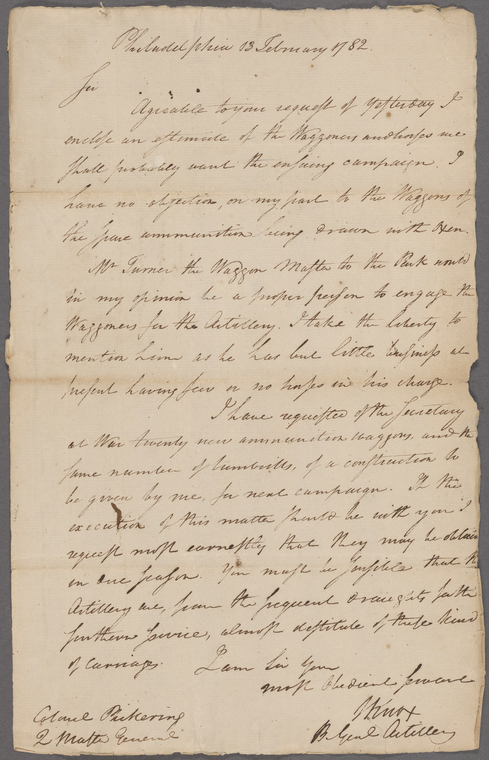 Philadelphia 13 February 1782.
Sir
Agreable to your request of yesterday I
enclose an estimate of the Waggoners and horses we
shall probably want the ensuing campaign. I
have no objection, on my part to the Waggons of
the spare ammunition being drawn with Oxen.
Mr Turner the Waggon Master to the Park would
in my opinion be a proper person to engage the
Waggoners for the Artillery. I take the liberty to
mention him as he has but little business at
present having few or no horses in his charge.
I have requested of the Secretary
at War twenty new ammunition waggons, and the
same number of tumbrills, of a construction to
be given by me, for next campaign. If the
execution of this matter should be with you I
request most earnestly that they may be obtain
in due season. You must be sensible that the
Artillery are, from the frequent draughts for the
southern service, almost destitute of these kind
of carriages. I am Sir your
most obedient servant
HKnox
B Genl Artillery
Colonel Pickering
Q Master General